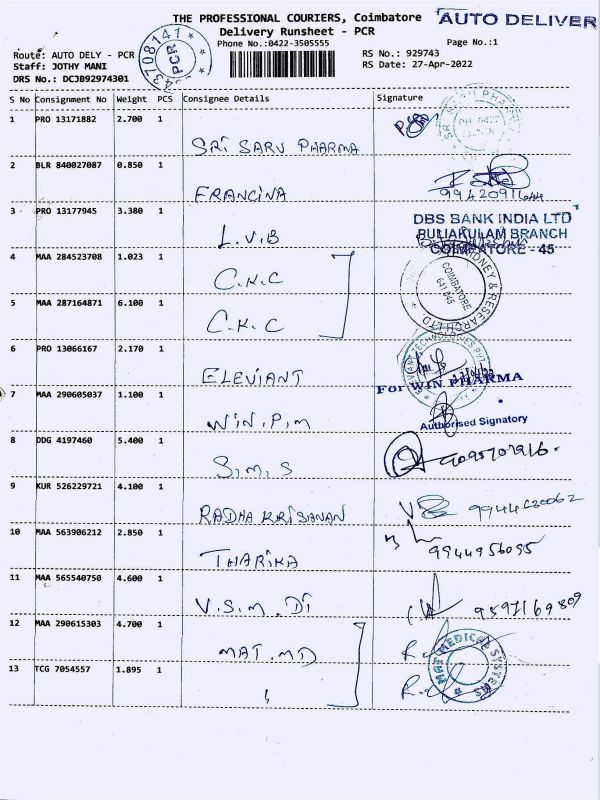 THE PROFESSIONAL COURIERS, Coimbatore
AUTO DELIVER
Delivery Runsheet - PCR
Phone No.:0422-3505555
Page No.:1
Route: AUTO DELY - PCR
RS No.: 929743
Staff: JOTHY MANI
RS Date: 27-Apr-2022
DRS No.: DCJB92974301
43708141
PCR
S No Consignment No Weight PCS Consignee Details Signature
1 PRO 13171882 2.700 1
SRI SARV PHARMA
2 BLR 840027087 0.850 1
FRANCINA
3 PRO 13177945 3.380 1
L.V.B
DBS BANK INDIA LTD
PULIAKULAM BRANCH
COIMBATORE - 45
4 MAA 284523708 1.023 1
C.K.C
COIMBATORE
641045
5 MAA 287164871 6.100 1
C.K.C
6 PRO 13066167 2.170 1
ELEVIANT
For WIN PHARMA
7 MAA 290605037 1.100 1
WIN.P.M
Authorised Signatory
8 DDG 4197460 5.400 1
S.M.S
9095707916
9 KUR 526229721 4.100 1
RADHA KRISANAN
9944620062
10 MAA 563906212 2.850 1
THARIKA
9944956095
11 MAA 565540750 4.600 1
V.S.M.DI
9597169809
12 MAA 290615303 4.700 1
MAT.MD
MAT MEDICAL SYSTEMS
13 TCG 7054557 1.895 1